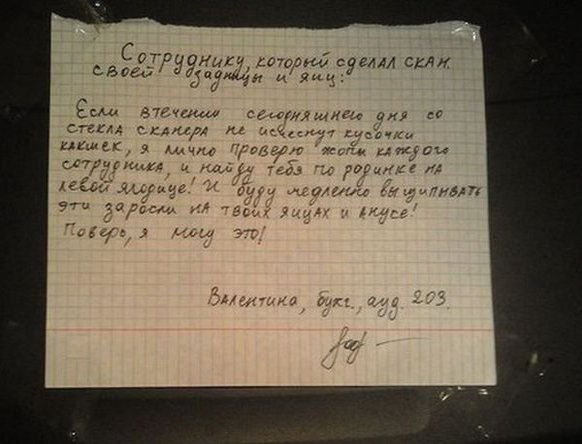 Сотруднику, который сделал скан
своей задницы и яиц:
Если втечении сегодняшнего дня со
стекла сканера не исчеснут кусочки
какшек, я лично проверю жопы каждого
сотрудника, и найду тебя по родинке на
левой ягодице! И буду медленно выщипывать
эти заросли на твоих яйцах и анусе!
Поверь, я могу это!
Валентина, бухг., ауд. 203.